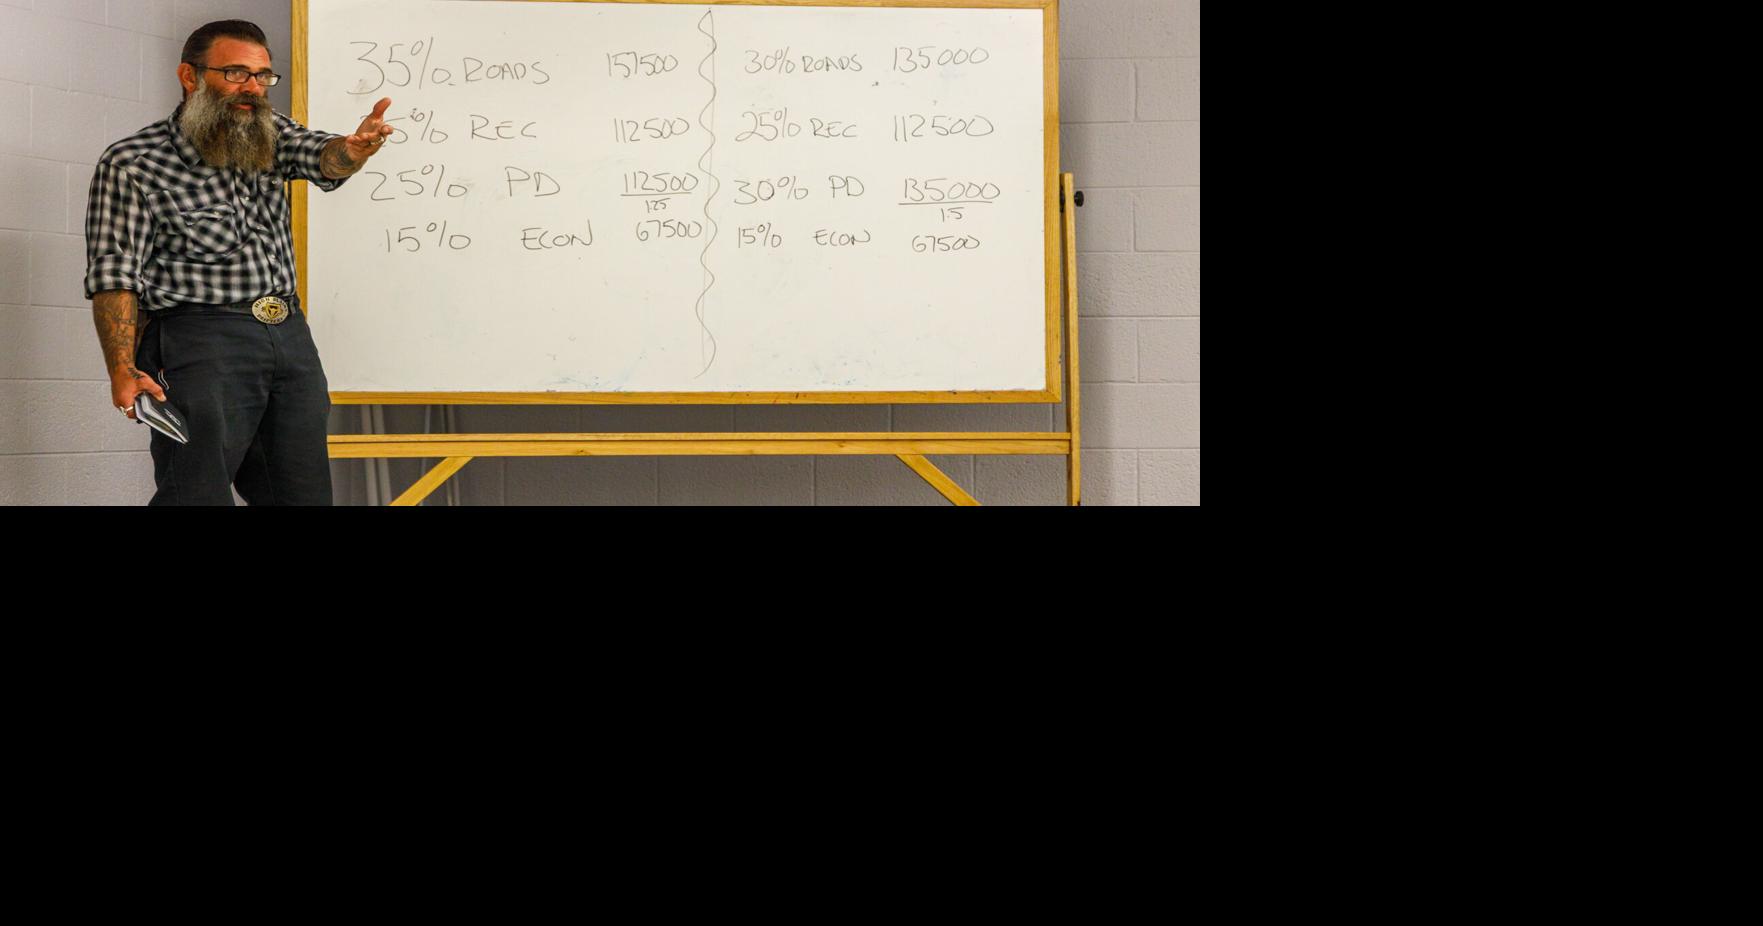 35% ROADS 157500
5% REC 112500
25% PD 112500
1.25
15% ECON 67500
30% ROADS 135000
25% REC 112500
30% PD 135000
1.5
15% ECON 67500